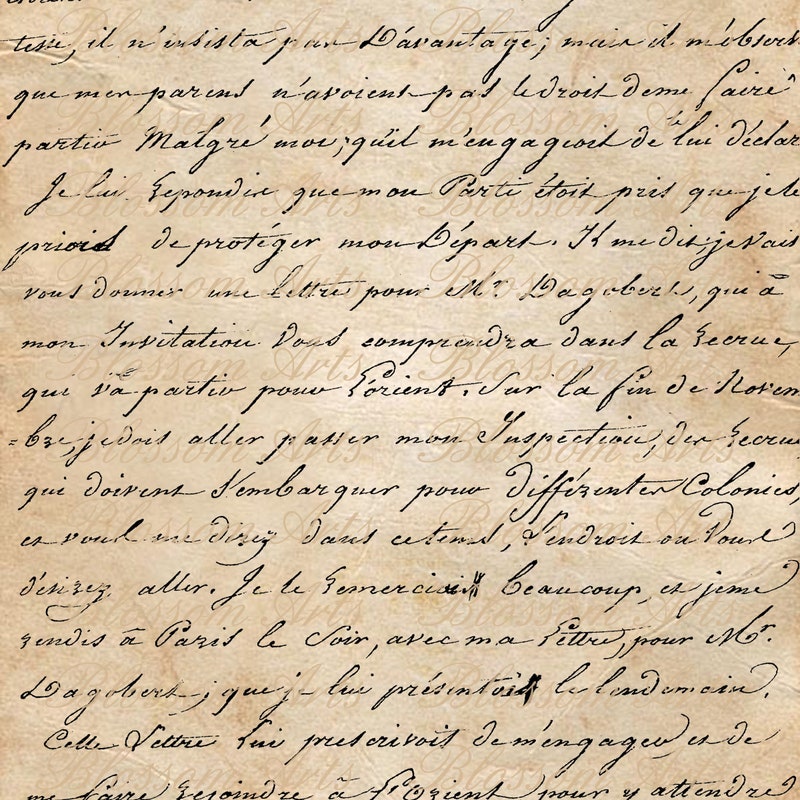 tesse, il n'insista pas D'avantage; mais il m'observ
que mes parens n'avoient pas le droit de me faire
partir Malgré moi; qu'il m'engageoit de le lui déclar
Je lui Repondis que mon Parti étoit pris que je le
priois de protéger mon Départ. Il me dit; je vais
vous donner une lettre pour Mr. Dagobert, qui à
mon Invitation Vous comprendra dans la Recrue,
qui va partir pour L'orient. Sur la fin de Novem
=bre, je dois aller passer mon Inspection, des Recrue
qui doivent s'embarquer pour différentes Colonies,
et vous me direz dans ce tems, l'endroit ou Vous
désirez aller. Je le Remerciai beaucoup, et je me
rendis à Paris le Soir, avec ma Lettre, pour Mr.
Dagobert; que je lui présentois le lendemain.
Cette Lettre Lui prescrivoit de m'engager, et de
me faire Rejoindre à L'Orient pour y attendre
Blossom Arts